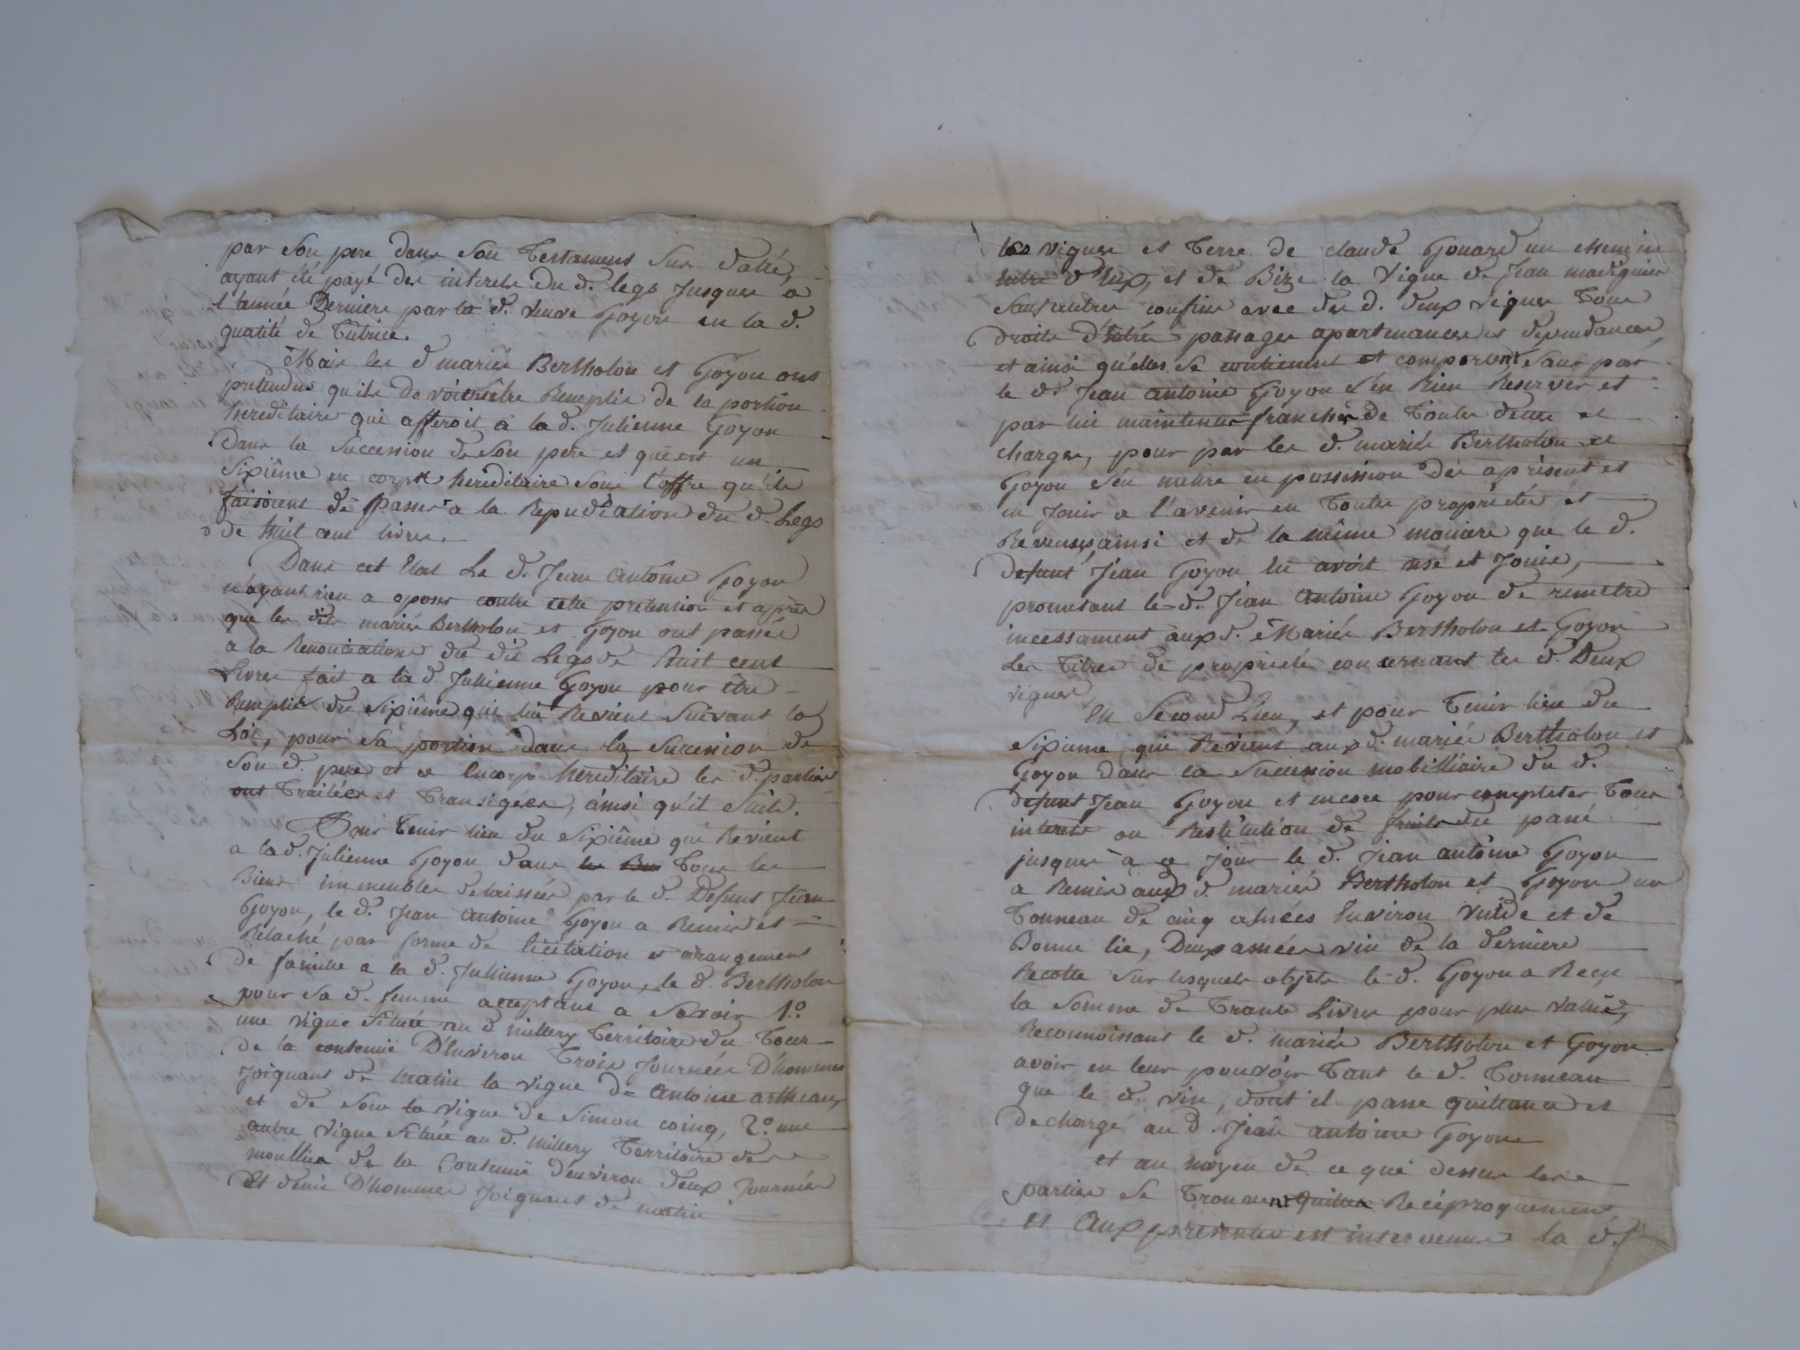 par Son pere dans Son Testament Sus datté,
ayant été payé des interets du d. legs Jusques a
l'année Derniere par la d. veuve Goyon en la d.
qualité de Tutrice.
Mais les d mariés Bertholon et Goyon ont
pretendu qu'ils devoient être Remplis de la portion
hereditaire qui afferoit à la d. Julienne Goyon
Dans la Succession de Son pere et qui est un
Sixiême en corps hereditaire Sous l'offre qu'ils
faisoient de Passer a la Repudiation du d. Legs
de huit cent livres.
Dans cet Etat Le d. Jean Antoine Goyon
n'ayant rien a oposer contre cette pretention et après
que les dits mariés Bertholon et Goyon ont passés
a la Renonciation du dit Legs de huit cent
Livres fait a la d. Julienne Goyon pour être
Remplie du Sixiême qui lui Revient Suivant la
Loi, pour Sa portion dans la Succession de
Son d. pere et ce en corps hereditaire les d. parties
ont Traitées et Transigées, ainsi qu'il Suit.
Pour Tenir lieu du Sixiême qui Revient
a la d. Julienne Goyon dans les Tous les
Biens immeubles delaissés par le d. Defunt Jean
Goyon, le d. Jean Antoine Goyon a Remis et
Relaché par forme de licitation et arangement
de famille a la d. Julienne Goyon, le d. Bertholon
pour Sa d. femme acceptant a Savoir 1.o
une vigne Située au d millery Territoire du Tour
de la contenue D'environ Trois Journées D'hommes
Joignant de matin la vigne de Antoine artheaux
et de Soir la vigne de Simon coinq, 2.o une
autre vigne Située au d. millery Territoire de
mouillea de la Contenue d'environ deux Journées
Et demie D'hommes Joignant de matin
les vignes et Terre de claude Gouard un chemin
entre d'eux, et de Bize la Vigne de Jean madignier
Sauf autres confins avec des d. deux vignes Tous
droits d'Entrés passages apartenances et dependances,
et ainsi qu'elles Se contiennent et comportent Sans par
le d. Jean antoine Goyon S'en Rien Reserver et
par lui maintenues franches de Toutes dettes et
charges, pour par les d. mariés Bertholon et
Goyon S'en mettre en possession des aprésent et
en Jouir a l'avenir en Toutes proprietés et
Revenus ainsi et de la même maniere que le d.
defunt Jean Goyon En avoit usé et Jouis,
promettant le d. Jean Antoine Goyon de remettre
incessament aux d. Mariés Bertholon et Goyon
Les Titres de proprieté concernant les d. Deux
vignes
En Second Lieu, et pour Tenir lieu du
Sixieme qui Revient aux d. mariés Bertholon et
Goyon dans la Succession mobilliaire du d.
defunt Jean Goyon et encore pour completer Tous
interets ou Restitution de fruits du passé
jusques à ce Jour le d. Jean antoine Goyon
a Remis aux d mariés Bertholon et Goyon un
Tonneau de cinq asnées Environ vuide et de
Bonne lie, Deux asnées vin de la derniere
Recolte Sur lesquels objets le d. Goyon a Reçu
la Somme de Trante Livres pour plus value,
Reconnoissant le d. mariés Bertholon et Goyon
avoir en leur pouvoir Tant le d. Tonneau
que le d. vin, dont il passe quittance et
decharge au d. Jean antoine Goyon
et au moyen de ce que dessus les
parties Se Trouvent quittes Reciproquement
et Aux presentes est intervenue la d.